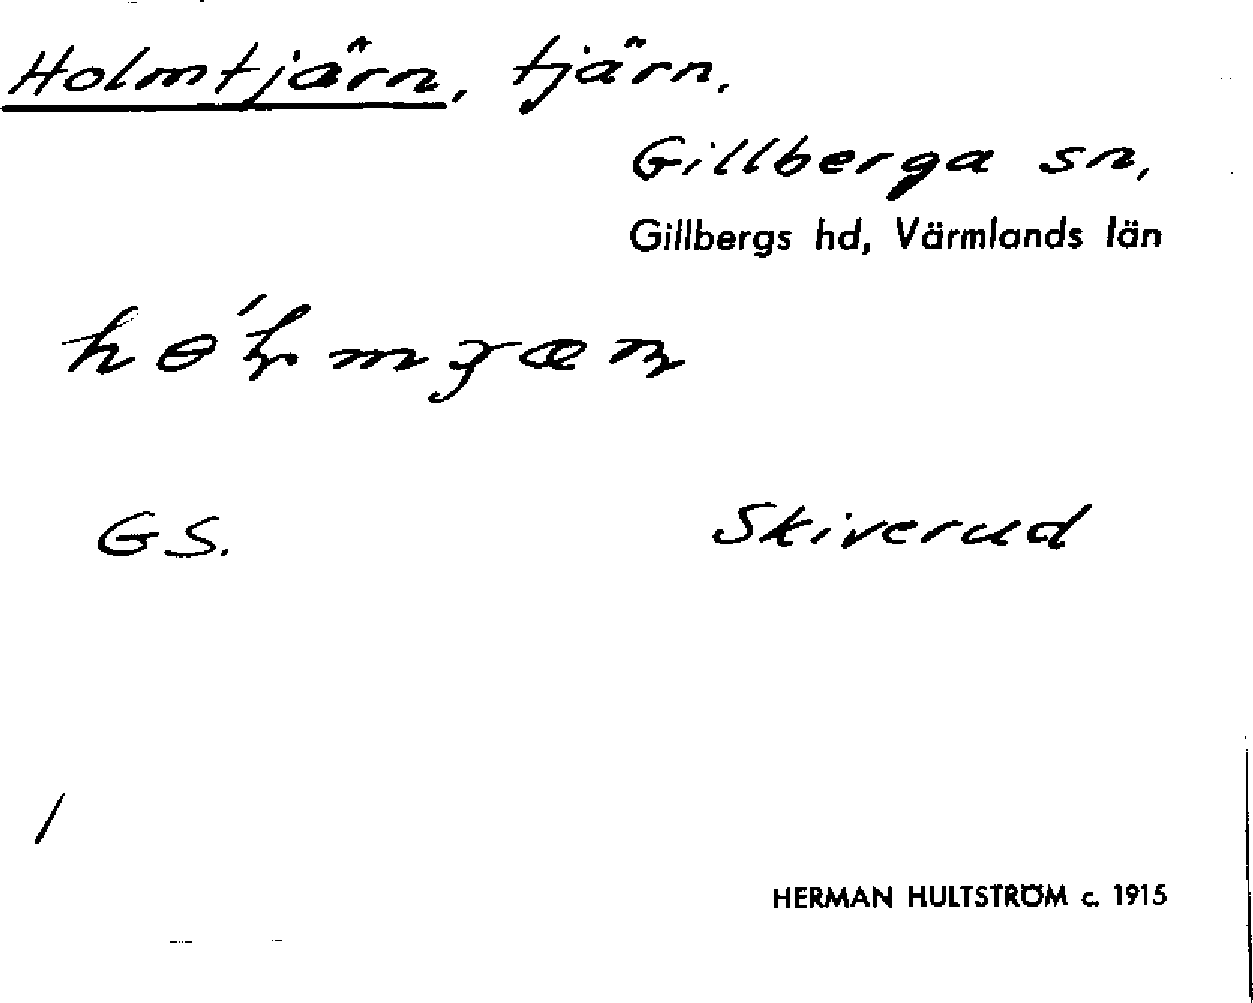 Holmtjärn, tjärn,
Gillberga sn,
Gillbergs hd, Värmlands län
GS. Skiverud
/
HERMAN HULTSTRÖM c. 1915